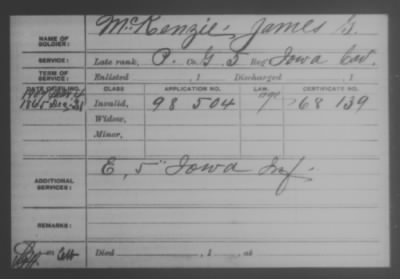 NAME OF SOLDIER: McKenzie, James G.
SERVICE: Late rank, P. Co. G, 5 Reg't Iowa Cav.
TERM OF SERVICE: Enlisted , 1 Discharged , 1
DATE OF FILING. CLASS APPLICATION NO. LAW. CERTIFICATE NO.
1865 Dec 21 Invalid, 98 504 68 139
Widow,
Minor,
ADDITIONAL SERVICES: E, 5" Iowa Inf.
REMARKS:
Died , 1 , at